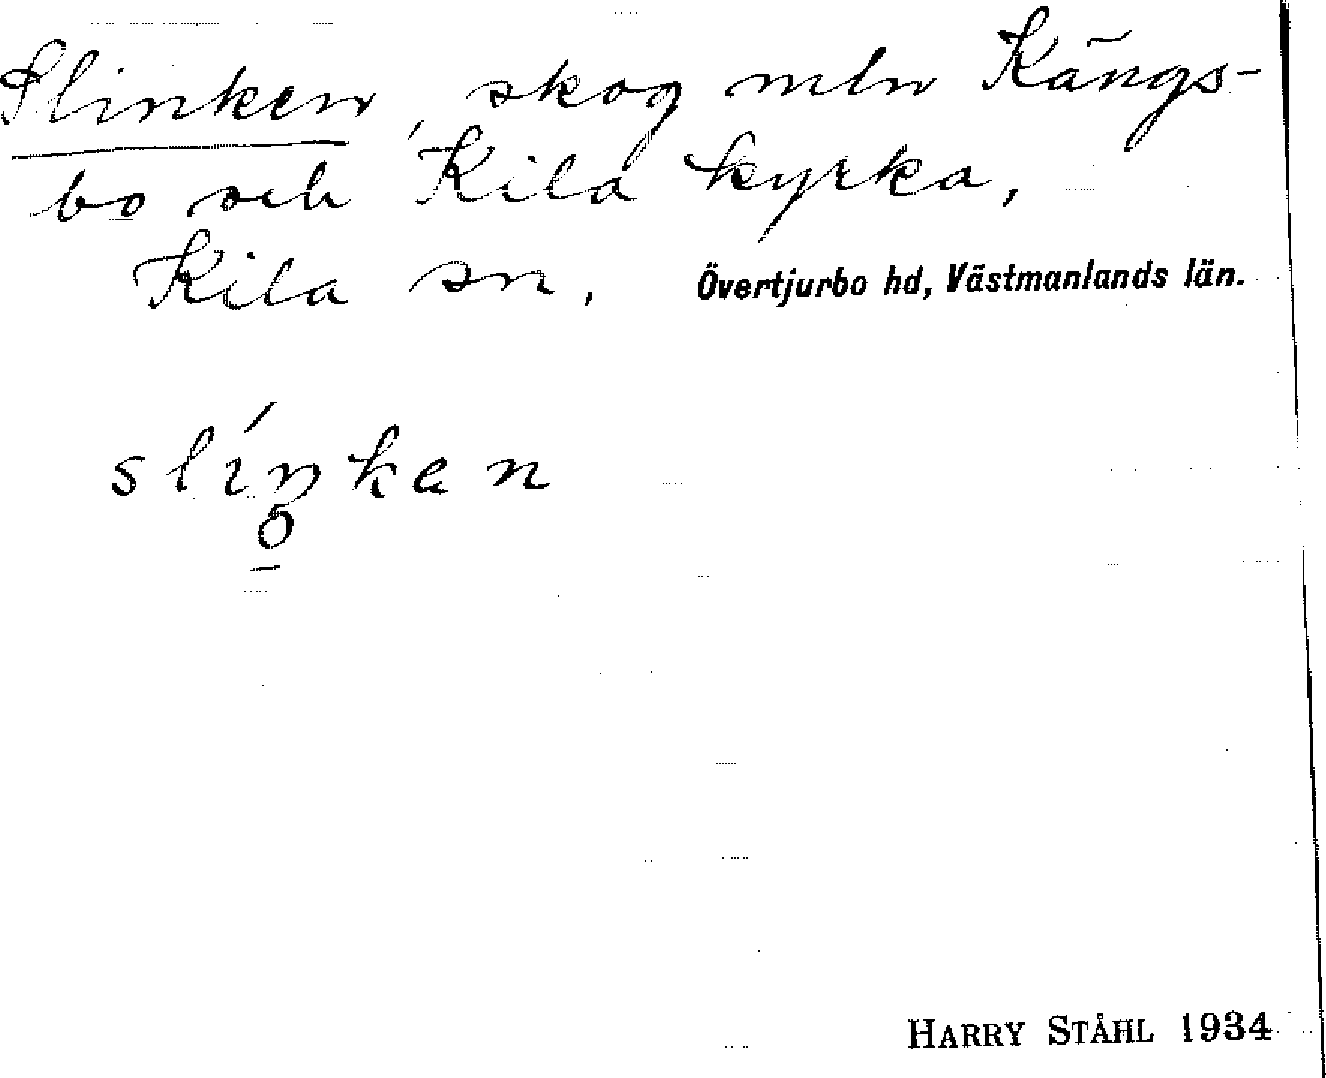 Slinken, skog mln Kängs-
bo och Kila kyrka,
Kila sn, Övertjurbo hd, Västmanlands län.
slíŋkan
HARRY STÅHL 1934